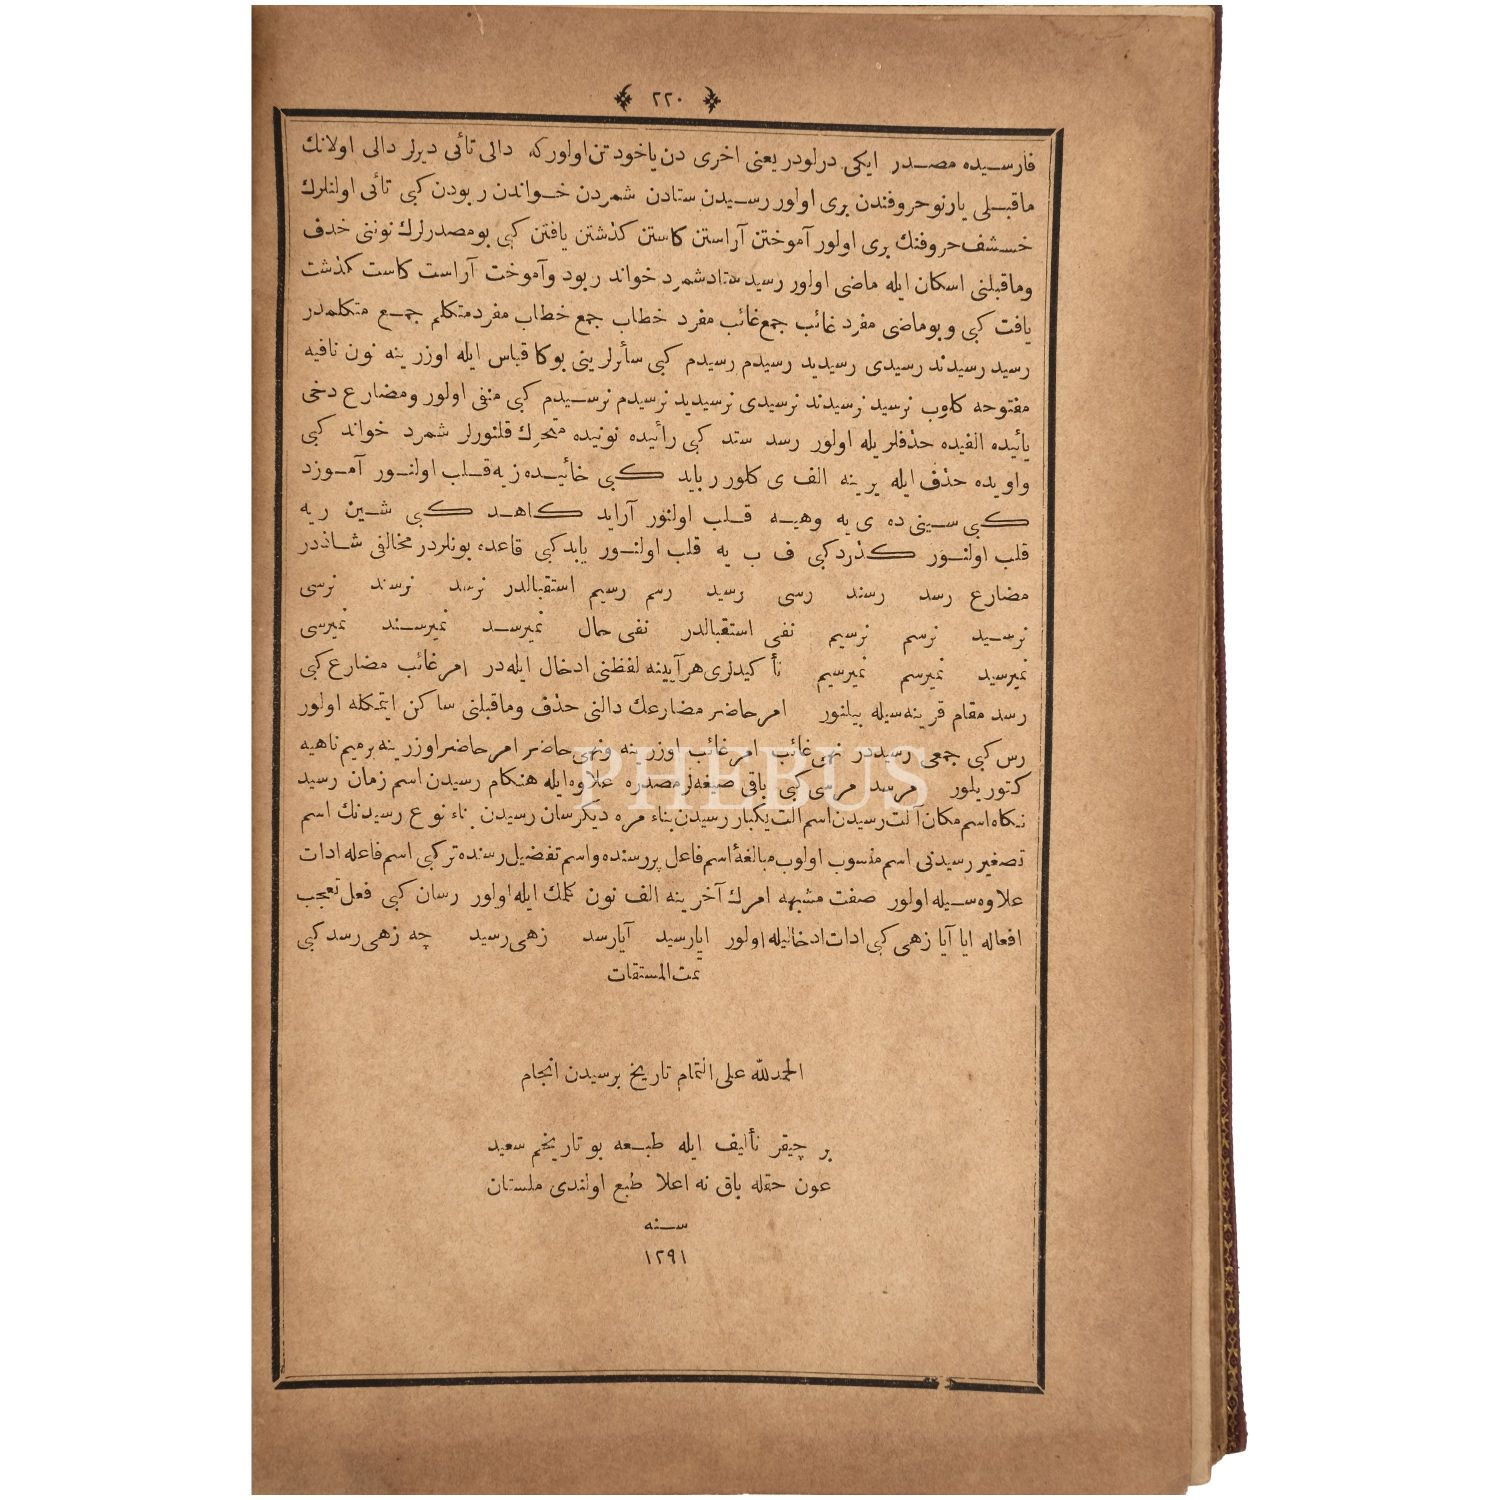 ٢٢٠
فارسیده مصدر ایکی درلودر یعنی اخری دن یاخود تن اولور که دالی تائی دیرلر دالی اولانك
ماقبلی یارنو حروفندن بری اولور رسیدن ستادن شمردن خواندن ربودن کبی تائی اولنلرك
خسشف حروفنك بری اولور آموختن آراستن کاستن کذشتن یافتن کبی بو مصدرلرك نوننی حذف
وماقبلنی اسکان ایله ماضی اولور رسید ستاد شمرد خواند ربود وآموخت آراست کاست کذشت
یافت کبی و بو ماضی مفرد غائب جمع غائب مفرد خطاب جمع خطاب مفرد متکلم جمع متکلمدر
رسید رسیدند رسیدی رسیدید رسیدم رسیدم کبی سأرلرینی بوکا قیاس ایله اوزرینه نون نافیه
مفتوحه کلوب نرسید نرسیدند نرسیدی نرسیدید نرسیدم نرسیدم کبی منفی اولور ومضارع دخی
یائیده الفیده حذفلریله اولور رسد ستد کبی رائیده نونیده متحرك قلنورلر شمرد خواند کبی
واویده حذف ایله یرینه الف ی کلور رباید کبی خائیده زیه قلب اولنور آموزد
کبی سینی ده ی یه وهیه قلب اولنور آراید کاهد کبی شین ریه
قلب اولنور کذرد کبی ف ب یه قلب اولنور یابد کبی قاعده بونلردر مخالفی شاذدر
مضارع رسد رسند رسی رسید رسم رسیم استقبالدر نرسد نرسند نرسی
نرسید نرسم نرسیم نفی استقبالدر نفی حال نمیرسد نمیرسند نمیرسی
نمیرسید نمیرسم نمیرسیم تأکیدلری هرآیینه لفظنی ادخال ایله در امر غائب مضارع کبی
رسد مقام قرینه سیله بیلنور امر حاضر مضارعك دالنی حذف وماقبلنی ساکن ایتمکله اولور
رس کبی جمعی رسیددر نهی غائب امر غائب اوزرینه ونهی حاضر امر حاضر اوزرینه برمیم ناهیه
کتوریلور مرسد مرسی کبی باقی صیغه لر مصدره علاوه ایله هنکام رسیدن اسم زمان رسید
نکاه اسم مکان آلت رسیدن اسم الت یکبار رسیدن بناء مره دیکرسان رسیدن بناء نوع رسیدنك اسم
تصغیر رسیدنی اسم منسوب اولوب مبالغهٔ اسم فاعل پررسنده واسم تفضیل رسنده ترکبی اسم فاعله ادات
علاوه سیله اولور صفت مشبهه امرك آخرینه الف نون کلمك ایله اولور رسان کبی فعل تعجب
افعاله ایا آیا زهی کبی ادات ادخالیله اولور ایارسید آیارسد زهی رسید چه زهی رسد کبی
تمت المستقات
الحمدلله علی التمام تاریخ برسیدن انجام
بر چیقر تألیف ایله طبعه بو تاریخم سعید
عون حقله باق نه اعلا طبع اولندی ملستان
سنه
١٢٩١
PHEBUS